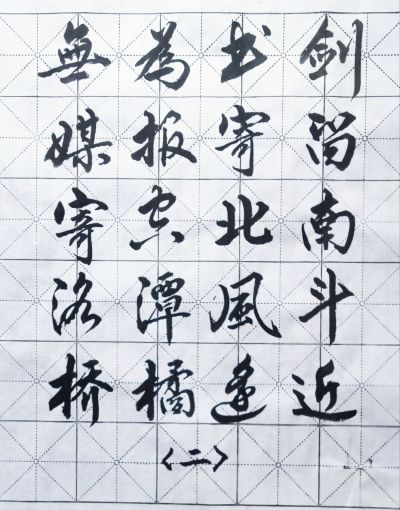 剑留南斗近
书寄北風遥
為报空潭橘
無媒寄洛桥
〈二〉